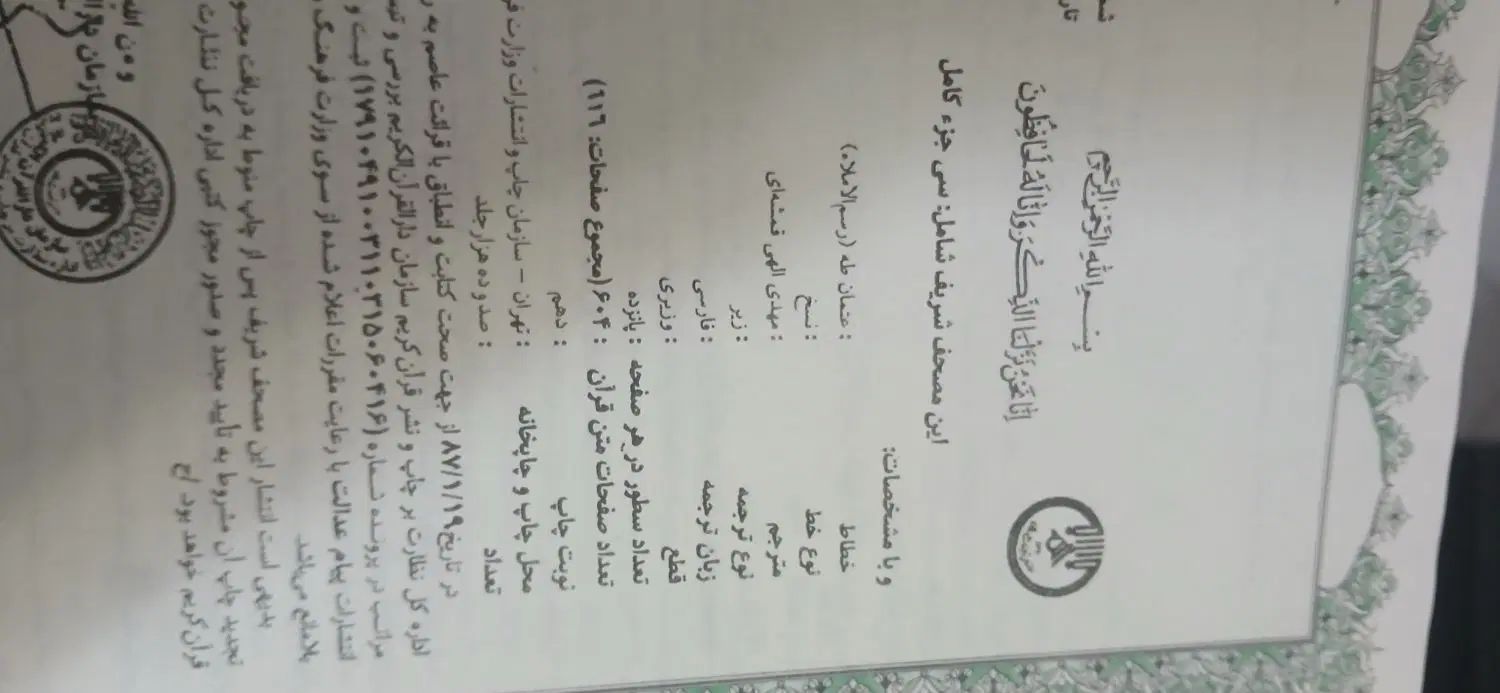 شم
تار
بِسْمِ اللهِ الرَّحْمنِ الرَّحِيمِ
إِنَّا نَحْنُ نَزَّلْنَا الذِّكْرَ وَإِنَّا لَهُ لَحَافِظُونَ
این مصحف شریف شامل: سی جزء کامل
و با مشخصات:
خطاط : عثمان طه (رسم‌الاملاء)
نوع خط : نسخ
مترجم : مهدی الهی قمشه‌ای
نوع ترجمه : زیر
زبان ترجمه : فارسی
قطع : وزیری
تعداد سطور در هر صفحه : پانزده
تعداد صفحات متن قرآن : ۶۰۴ (مجموع صفحات: ۶۱۶)
نوبت چاپ : دهم
محل چاپ و چاپخانه : تهران - سازمان چاپ و انتشارات وزارت فر
تعداد : صد و ده هزار جلد
در تاریخ ۸۷/۱/۱۹ از جهت صحت کتابت و انطباق با قرائت عاصم به ر
اداره کل نظارت بر چاپ و نشر قرآن کریم سازمان دارالقرآن‌الکریم بررسی و
مراتب در پرونده شماره (۱۷۹۱۰۴۹۱۰۰۳۱۱۰۳۱۵۰۶۰۴۱۶) ثبت و
انتشارات پیام عدالت با رعایت مقررات اعلام شده از سوی وزارت فرهنگ
بلامانع می‌باشد.
بدیهی است انتشار این مصحف شریف پس از چاپ منوط به دریافت مجو
تجدید چاپ آن مشروط به تأیید مجدد و صدور مجوز کتبی اداره کل نظارت
قرآن کریم خواهد بود. /ج
و من الله
سازمان دار